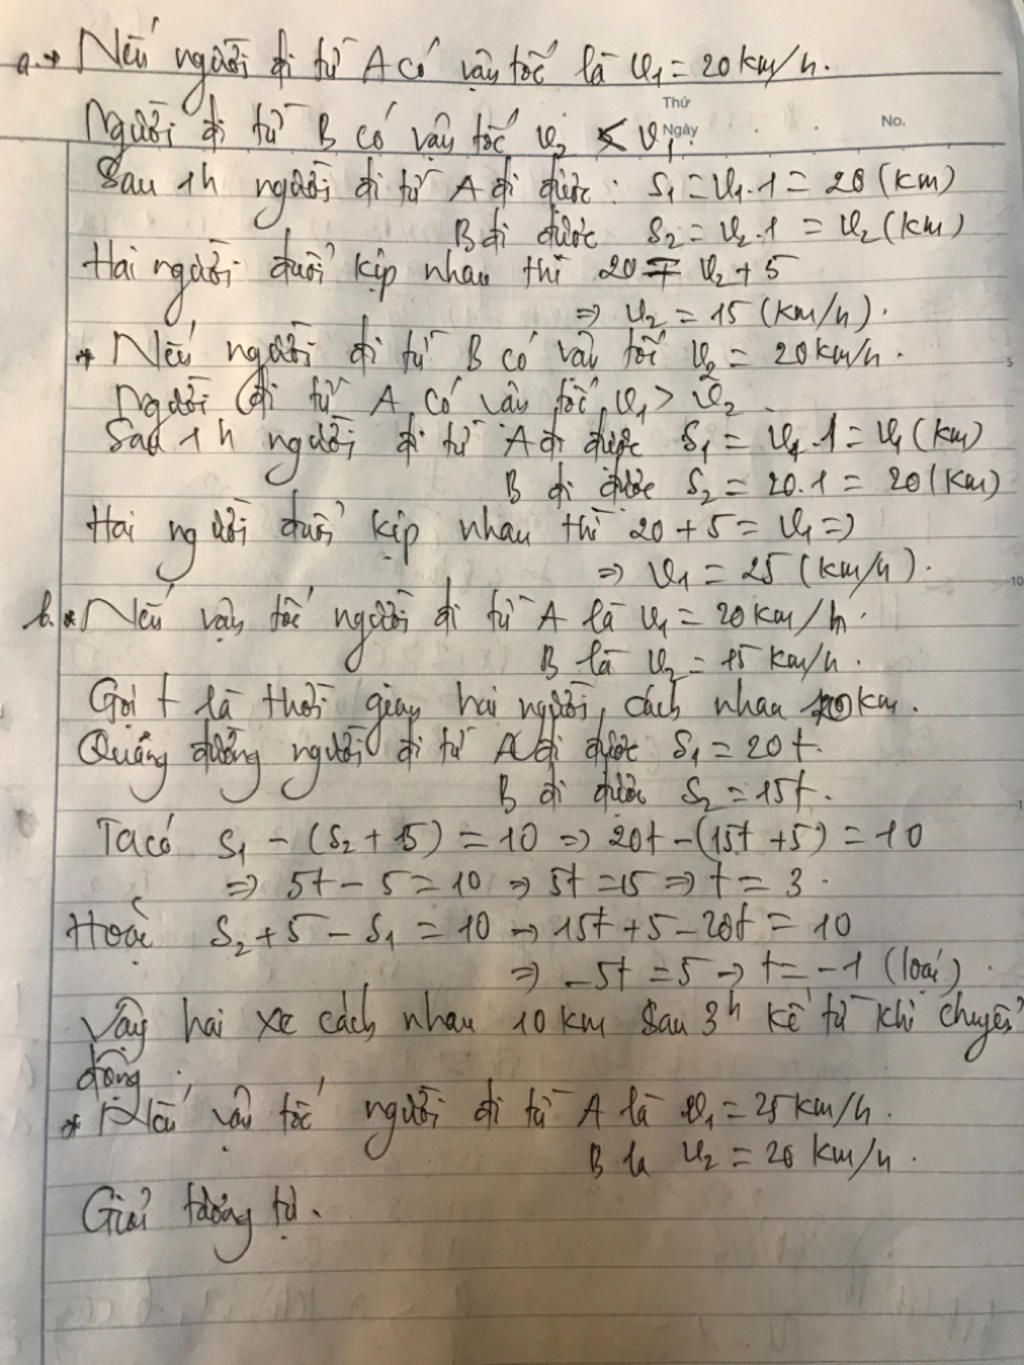 a. * Nếu người đi từ A có vận tốc là v₁ = 20 km/h.
Thứ
Người đi từ B có vận tốc v₂ < v₁
Ngày
No.
Sau 1h người đi từ A đi được: S₁ = v₁.1 = 20 (km)
B đi được S₂ = v₂.1 = v₂ (km)
Hai người đuổi kịp nhau thì 20 = v₂ + 5
⇒ v₂ = 15 (km/h).
* Nếu người đi từ B có vận tốc v₂ = 20 km/h.
5
Người đi từ A có vận tốc v₁ > v₂.
Sau 1h người đi từ A đi được S₁ = v₁.1 = v₁ (km)
B đi được S₂ = 20.1 = 20 (km)
Hai người đuổi kịp nhau thì 20 + 5 = v₁ ⇒
⇒ v₁ = 25 (km/h).
10
b. * Nếu vận tốc người đi từ A là v₁ = 20 km/h.
B là v₂ = 15 km/h.
Gọi t là thời gian hai người cách nhau 10 km.
Quãng đường người đi từ A đi được S₁ = 20t.
B đi được S₂ = 15t.
Ta có S₁ - (S₂ + 5) = 10 ⇒ 20t - (15t + 5) = 10
⇒ 5t - 5 = 10 ⇒ 5t = 15 ⇒ t = 3.
Hoặc S₂ + 5 - S₁ = 10 → 15t + 5 - 20t = 10
⇒ -5t = 5 → t = -1 (loại).
Vậy hai xe cách nhau 10 km sau 3h kể từ khi chuyển
động.
* Nếu vận tốc người đi từ A là v₁ = 25 km/h.
B là v₂ = 20 km/h.
Giải tương tự.